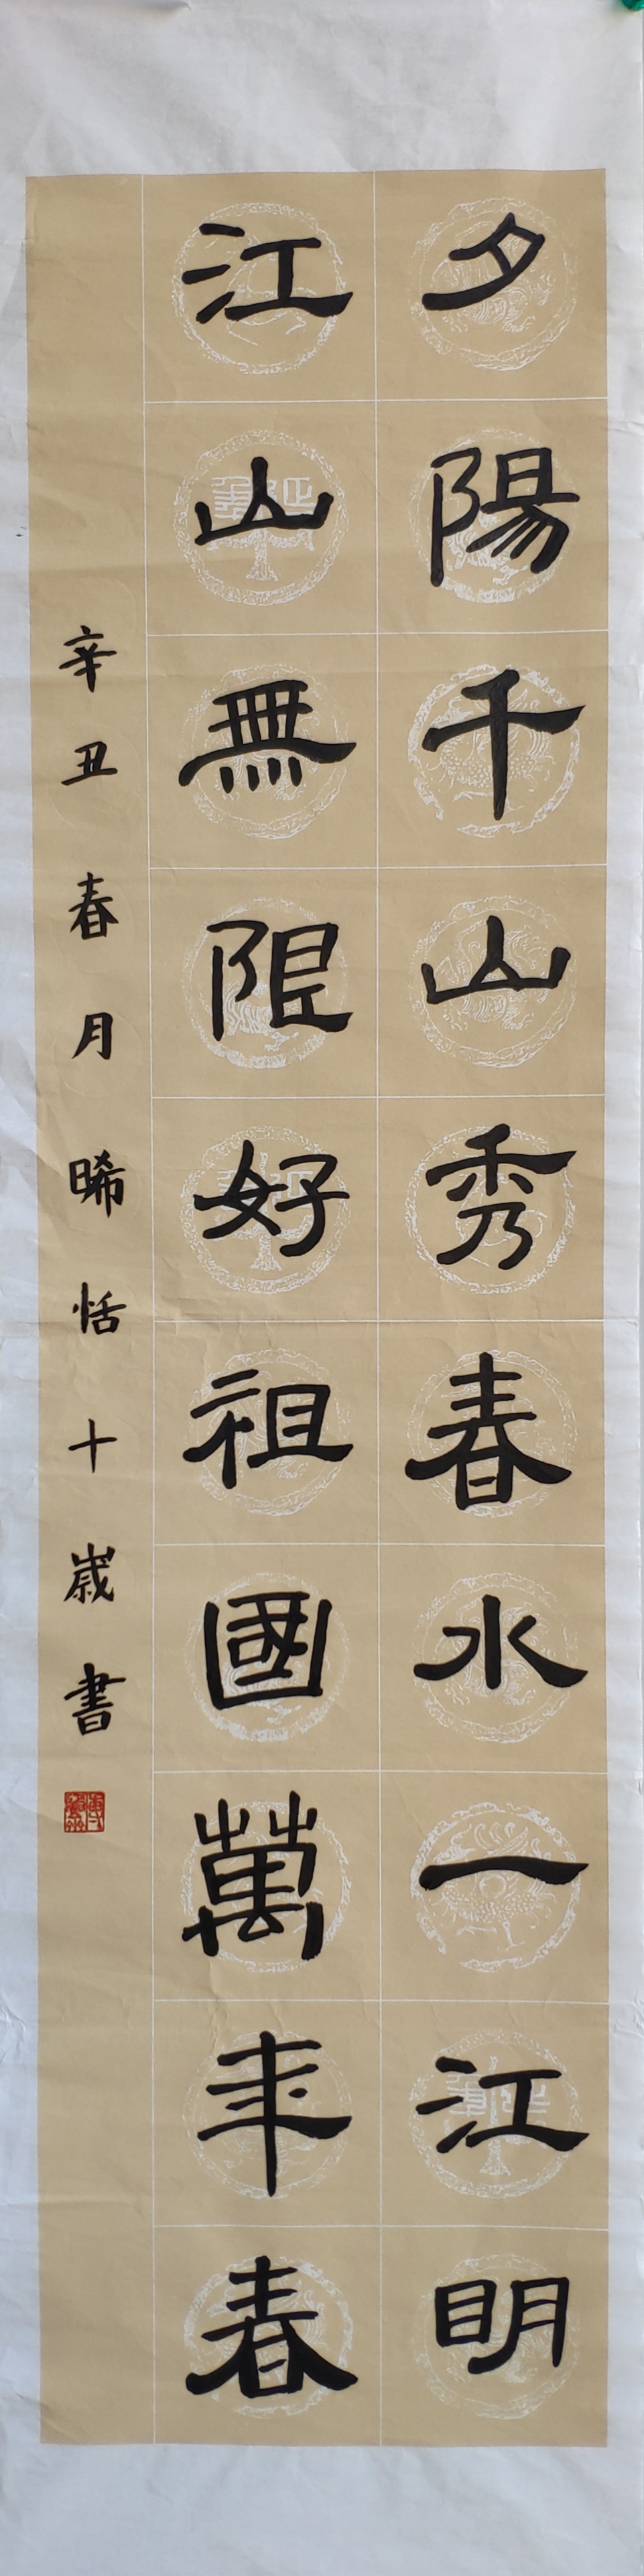 夕陽千山秀春水一江明
江山無限好祖國萬年春
辛丑春月晞恬十歲書